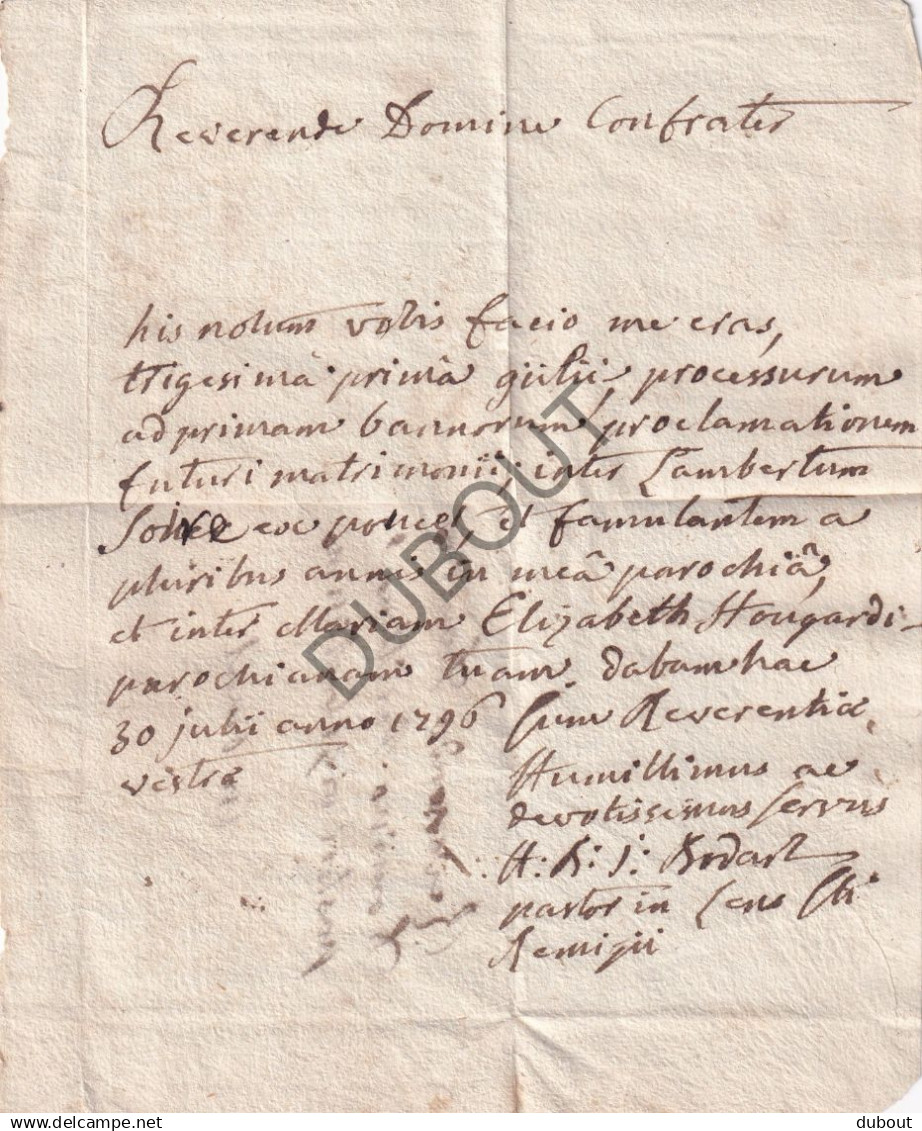 Reverende Domine Confrater
his notum vobis facio me cras,
trigesimâ primâ giulii, processurum
ad primam bannorum proclamationem
futuri matrimonii, inter Lambertum
ex et famulantem a
pluribus annis in meâ parochiâ,
et inter Mariam Elizabeth Hougardi
parochianam tuam. dabam hac
30 julii anno 1796 sum Reverentiæ
vestræ
Humillimus ac
devotissimus servus
H: B: J: Bodart
pastor in Lens Sti
Remigii
DUBOUT
Delcampe.net
dubout